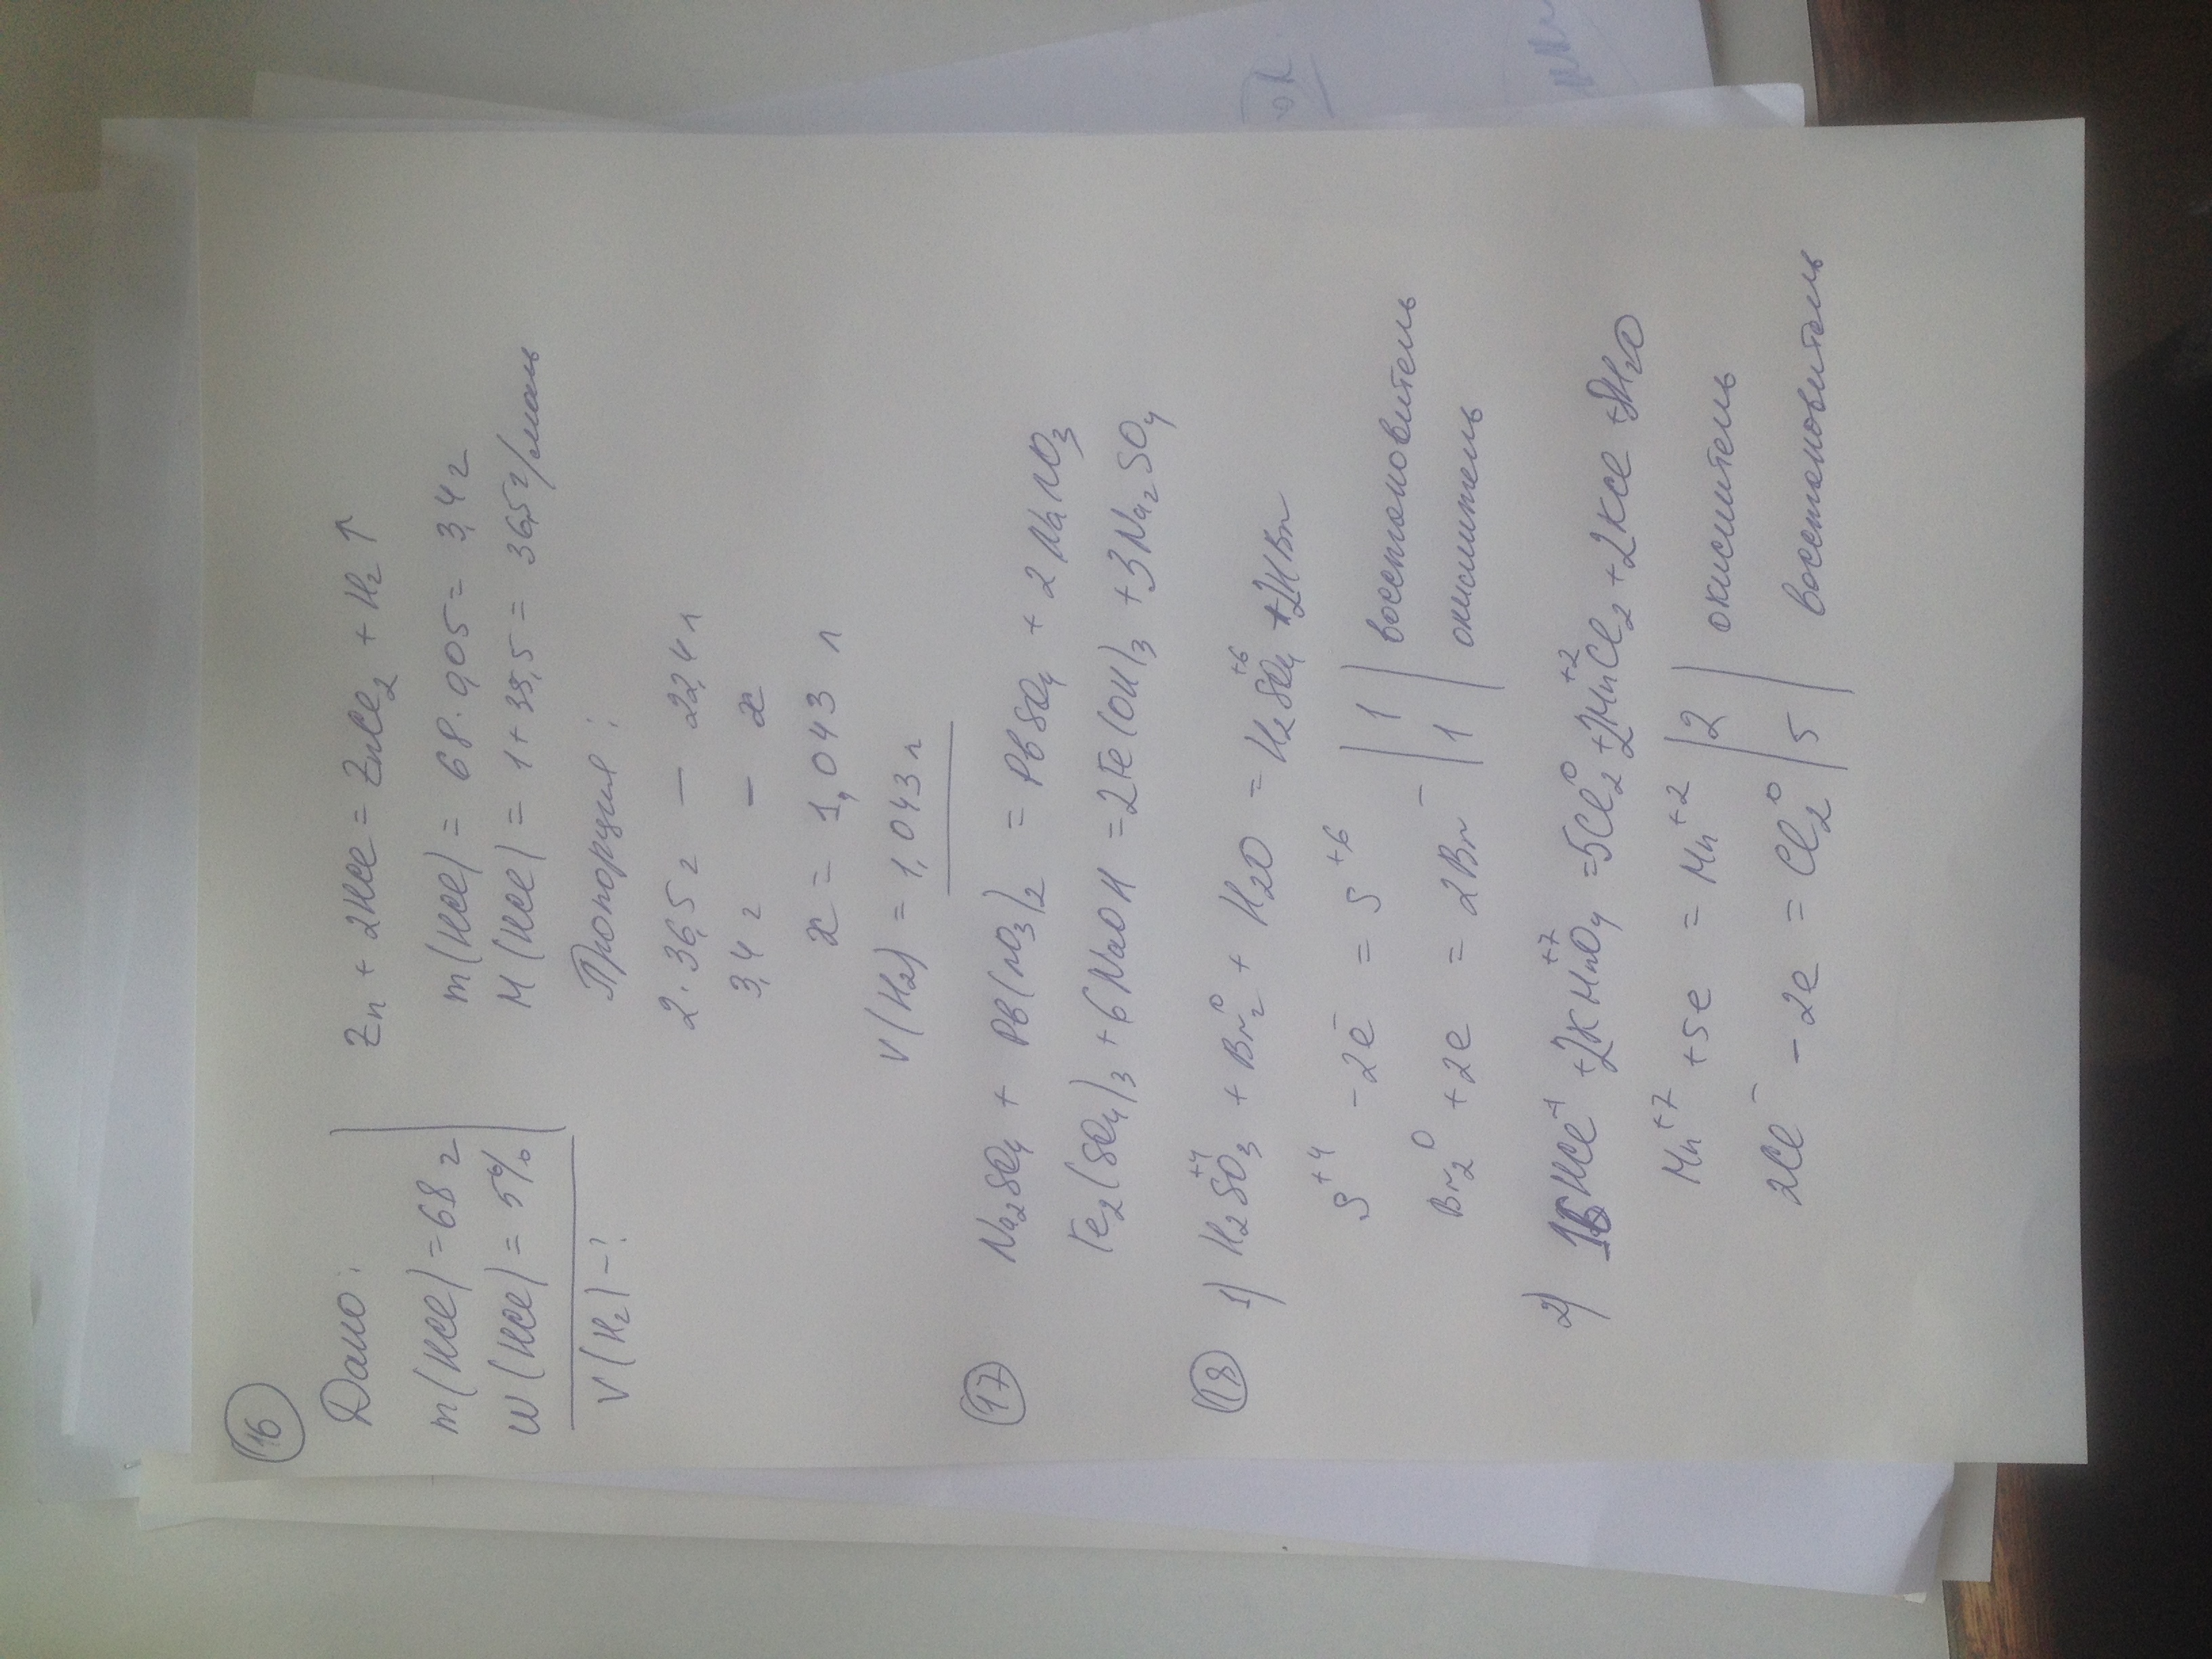 16
Дано:
m(HCl) = 68 г
w(HCl) = 5%
V(H₂) - ?
Zn + 2HCl = ZnCl₂ + H₂ ↑
m(HCl) = 68 · 0,05 = 3,4 г
M(HCl) = 1 + 35,5 = 36,5 г/моль
Пропорция:
2 · 36,5 г — 22,4 л
3,4 г — x
x = 1,043 л
V(H₂) = 1,043 л
17
Na₂SO₄ + Pb(NO₃)₂ = PbSO₄ + 2NaNO₃
Fe₂(SO₄)₃ + 6NaOH = 2Fe(OH)₃ + 3Na₂SO₄
18
1) H₂S⁺⁴O₃ + Br₂⁰ + H₂O = H₂S⁺⁶O₄ + 2HBr
S⁺⁴ - 2e⁻ = S⁺⁶ | 1 | восстановитель
Br₂⁰ + 2e = 2Br⁻ | 1 | окислитель
2) 16HCl⁻¹ + 2KMn⁺⁷O₄ = 5Cl₂⁰ + 2Mn⁺²Cl₂ + 2KCl + 8H₂O
Mn⁺⁷ + 5e = Mn⁺² | 2 | окислитель
2Cl⁻ - 2e = Cl₂⁰ | 5 | восстановитель